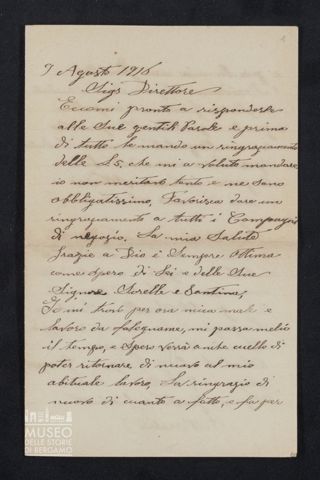 7 Agosto 1916
Sigr Direttore
Eccomi pronto a risponderle
alle Sue gentili Parole e prima
di tutto le mando un ringraziamento
delle L5, che mi a voluto mandare
io non meritavo tanto e ne sono
obbligatissimo, Favorisca dare un
ringraziamento a tutti i Compagni
di negozio, La mia Salute
Grazie a Dio è Sempre Ottima
come Spero di Lei e delle Sue
Signore Sorelle e Santina,
Io mi trovo per ora mica male e
lavoro da falegname, mi passa melio
il tempo, e Spero verrà anche cuello di
poter ritornare di nuovo al mio
abituale lavoro, La ringrazio di
nuovo di cuanto a fatto, e fa per
MUSEO
DELLE STORIE
DI BERGAMO